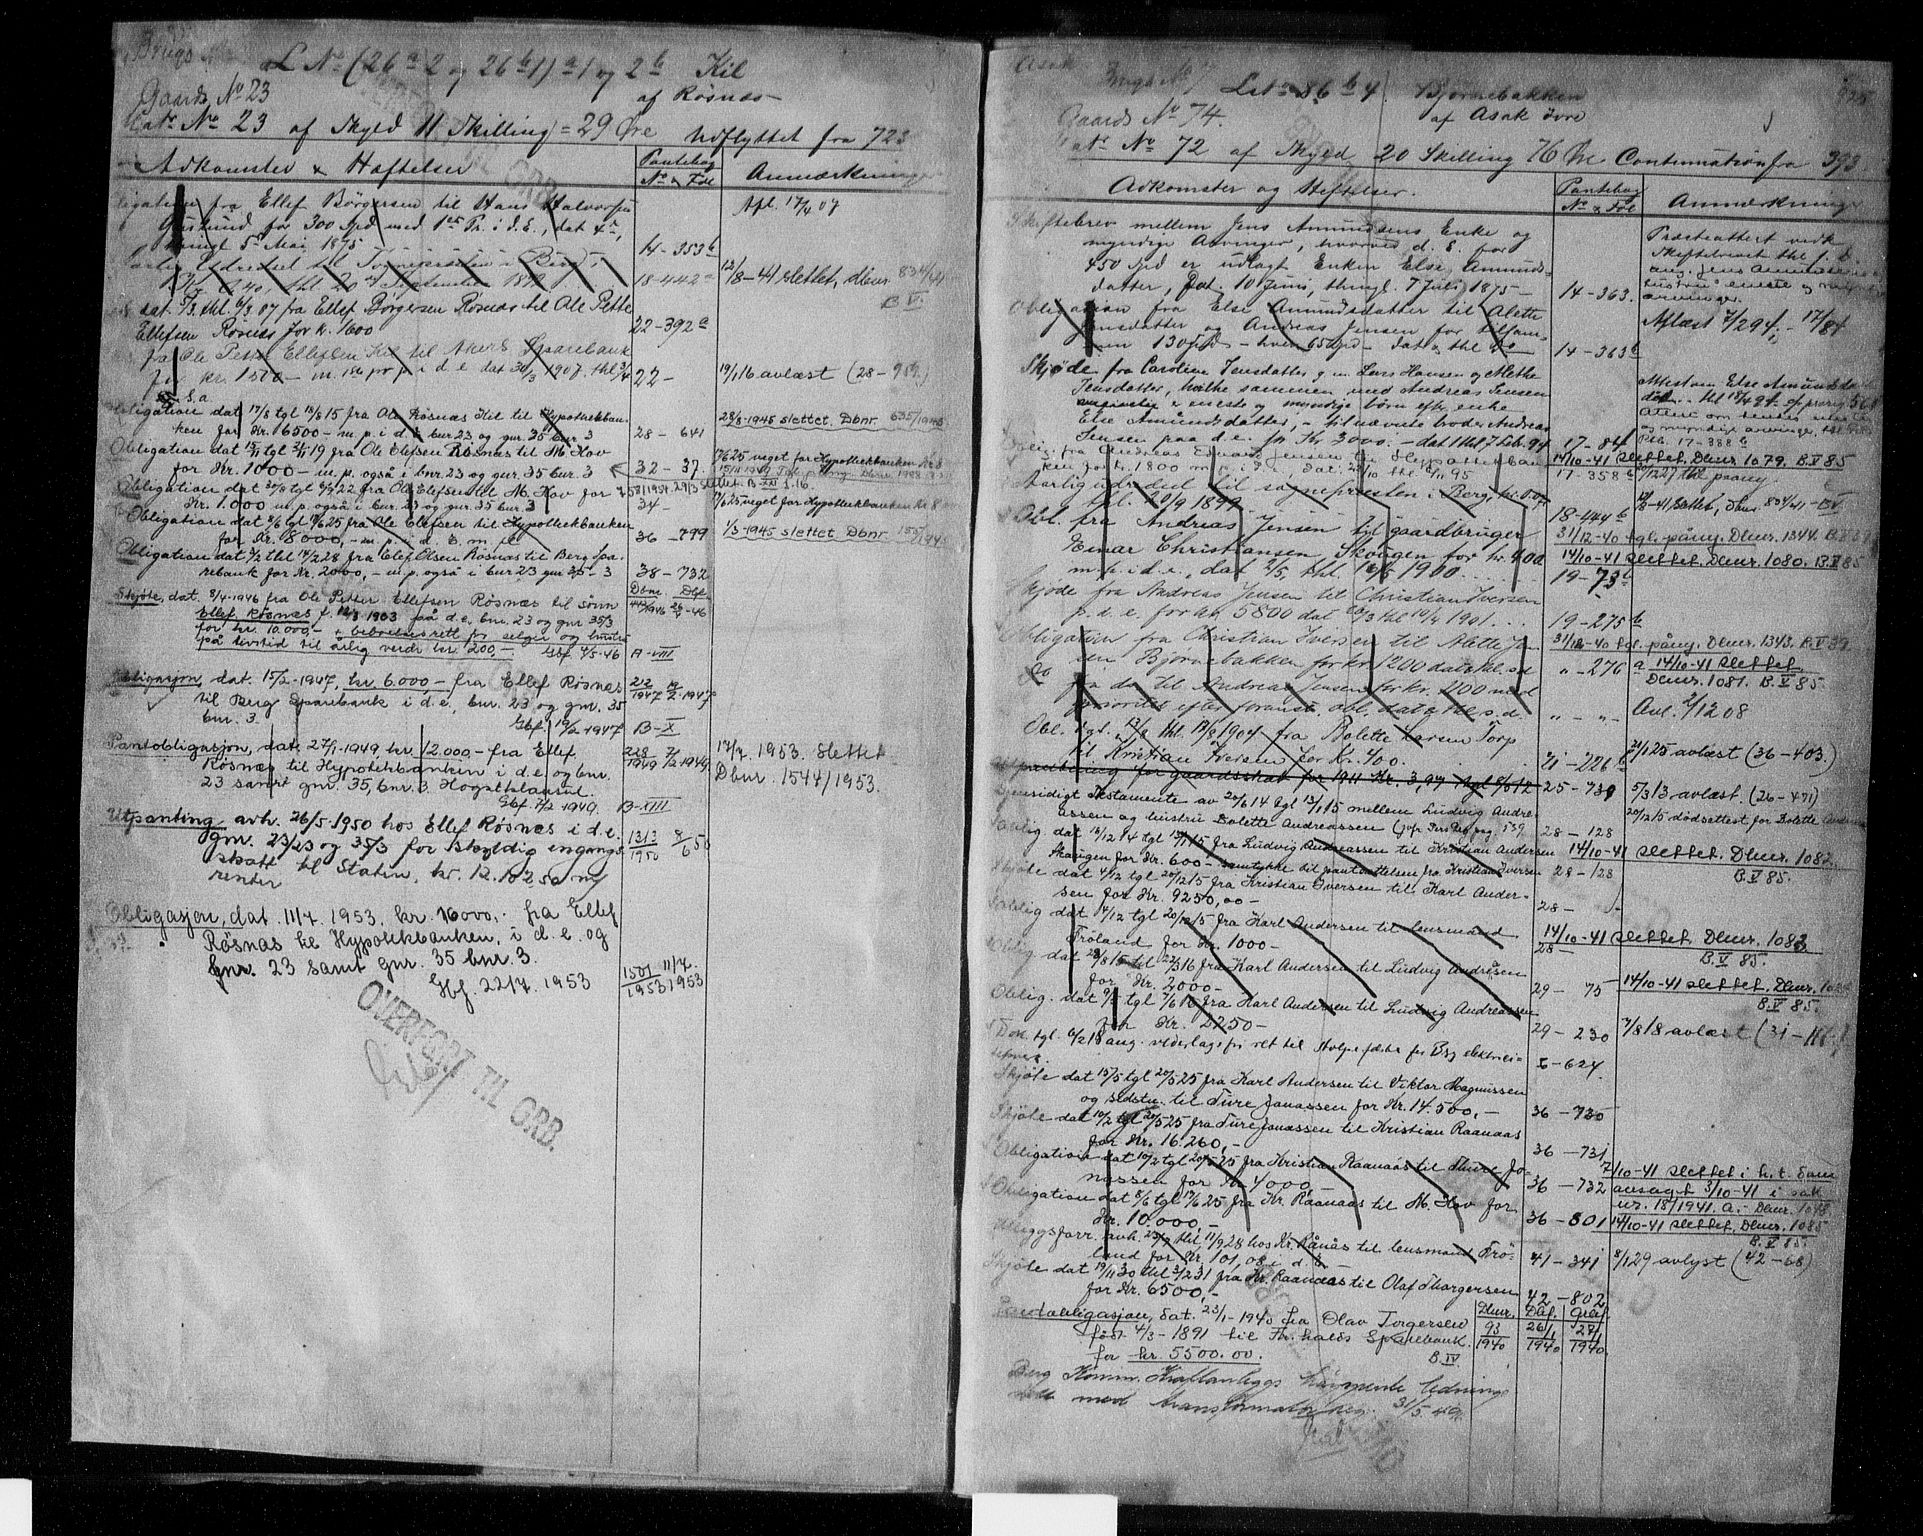 Brugs
L No (26 a 2 og 26 b 1) a 1 og 2 b Kil
Gaards No 23 af Røsnæs
Matr No 23 af Skyld 11 Skilling = 29 Øre Udflyttet fra 723
Adkomster & Hæftelser Pantebog No & Fol Anmærkninger
Obligation fra Ellef Børgersen til Hans Halvorsen Apl. 17/4 07
for 300 Spd med 1ste Pr. i d. E., dat 4de,
tingl 5te Mai 1875 14-353 b
Aarlig Udredsel til Sognepræsten i Berg 12/8-41 slettet, dbnr 834/41
thl 20 September 1899 18-442 a B V.
dat 5/3, thl. 6/3 07 fra Ellef Børgersen Røsnæs til Ole Petter
Ellefsen Røsnæs for k. 1600 22-392 a
fra Ole Petter Ellefsen Kil til Akers Sparebank
for kr. 1500 - m. 1ste pr p i d e dat 30/3 1907. thl 3/4 22- 19/1 16 avlæst (28-959)
s.a
Obligation dat 17/8 tgl 18/8 15 fra Ole Røsnæs Kil til Hypothekban- 28/8-1945 slettet. Dbnr. 635/1945
ken for Kr. 6500 - m. p. i d. e bnr 23 og gnr. 35 bnr 3 28-641
Obligation dat 15/11 tgl 21/11 19 fra Ole Elefsen Røsnæs til M. Hov 17/6 25 veget for Hypothekbanken Kr 8
for Kr. 1000 - m. p. også i bnr 23 og gnr. 35 bnr. 3 32-37.
Obligation dat 30/8 tgl 6/9 22 fra Ole Elefsen til M. Hov for 758/1954. 29/3 slettet B-XXI f. 16.
Kr. 1.000 m. p. også i bnr 23 og gnr. 35 bnr. 3 34- 17/6 25 veget for Hypothekbanken Kr 8000
Obligation dat 8/6 tgl 17/6 25 fra Ole Elefsen til Hypothekbanken
for Kr. 8000,- m. p. i d. E. m. fl. 36-799 1/3-1945 slettet Dbnr 155/1945
Obligation dat 3/2 thl 14/2 28 fra Elef Olsen Røsnæs til Berg Spa-
rebank for Kr. 2000,- m. p. også i bnr 23 gnr 35-3 38-732
Dbnr. Dbf.
Skjøte, dat. 8/4-1946 fra Ole Petter Ellefsen Røsnæs til sønn 442/1946 26/2-46
Ellef Røsnæs f. 12/8 1903 på d. e. bnr. 23 og gnr 35/3
for kr. 10.000,- + beboelsesrett for selger og hustru
på livstid til årlig verdi kr. 200,- Gbf 4/5-46 A-VIII
Obligasjon, dat. 15/2-1947, kr 6.000,- fra Ellef Røsnæs 212/1947 19/2-1947
til Berg Sparebank i d. e., bnr. 23 og gnr. 35
bnr. 3. Gbf. 19/2-1947 B-X
Pantobligasjon, dat. 27/1-1949 kr. 12.000,- fra Ellef 228/1949 7/2 1949 17/7 1953. Slettet
Røsnæs til Hypotekbanken i d. e. og bnr. Dbnr. 1544/1953.
23 samt gnr. 35, bnr. 3. Høgstklausul.
Gbf 7/2-1949. B-XIII
Utpanting avh. 26/5-1950 hos Ellef Røsnæs i d. e.
gnr. 23/23 og 35/3 for skyldig engangs- 1313/1950 8/6 50
skatt til Staten, kr. 12.102.50 m/
renter
Obligasjon, dat. 11/7 1953. kr. 16000,- fra Ellef
Røsnæs til Hypotekbanken, i d. e. og
bnr. 23 samt gnr. 35 bnr. 3.
Gbf. 22/7. 1953 1501/1953 11/7. 1953
OVERFØRT TIL GRB.
Asak Brugs No 7 Lit a 86 b 4 Bjørnebakken
Gaards No 74. af Asak Øvre
Matr No 72 af Skyld 20 Skilling 76 Øre Continuation fra 393
Adkomster og Heftelser. Pantebog No & Fol Anmærkninger
Skiftebrev mellem Jens Amundsens Enke og
myndige Arvinger, hvorved d. E. for
450 Spd er udlagt Enken Else Amunds-
datter, Dat. 10 Juni, thingl. 7 Juli 1875 - 14-363.
Obligation fra Else Amundsdatter til Alette
Jensdatter og Andreas Jensen for tilsam- Aflæst 7/2 94, - 17/84
men 130 Spd - hver 65 Spd - dat & thl do 14-363 b
Skjøde fra Caroline Jensdatter g. m. Lars Hansen og Mathe
Jensdatter, hvilke sammen med Andreas Jensen
angivelig er eneste og myndige børn efter enke
Else Amundsdatter, - til nævnte broder Andreas
Jensen paa d. e. for Kr 3000. - dat & thl 7 Feb. 94 17-84 Ptb. 17-388 b
Oblig. fra Andreas Edvard Jensen til Hypothekban- 14/10-41 slettet. Dbnr. 1079. B. V 85
ken for kr. 1800 m. p. i d. E. dat. 29/10 thl 6/11 95 17-358 b
Aarlig udredsel til sognepræsten i Berg, kr. 0.
thl. 20/9 1899. 18-444 b 12/8-41 slettet, Dbnr. 834/41-BV
Obl. fra Andreas Jensen til gaardbruger 31/12-40 tgl. påny. Dbnr. 1344. B. V 39
Einar Christiansen Skougen for kr. 400 14/10-41 slettet. Dbnr. 1080. B. V 85
m. p. i d. e., dat 2/5, thl. 18/5 1900. 19-73 b
Skjøde fra Andreas Jensen til Christian Iversen
p. d. e. for kr 5800 dat 20/3 thl 14/4 1901. 19-275 b
Obligation fra Christian Iversen til Alette Jen- 31/12-40 tgl. påny. Dbnr. 1343. B. V 39
sen Bjørnebakken for kr. 1200 dat & thl s. d. " - 276 a 14/10-41 slettet
Do fra do til Andreas Jensen for kr. 1100 med Dbnr. 1081. B. V 85.
prioritet efter foranst. obl. dat & thl s. d. " - " Avl. 2/12 08
Obl. dgl. 13/8 thl 17/8 1904 fra Bolette Larsen Torp
til Kristian Iversen for Kr. 400. 21-226 b 21/1 25 avlæst (36-403.)
Utpantning for gaardsskat for 1911 Kr. 3,97 tgl 6/5 12 25-739 5/3 13 avlæst. (26-471)
Gjensidigt Testamente av 20/6 14 tgl 13/1 15 mellem Ludvig Andre-
assen og hustru Bolette Andreassen 28-128 20/12 15 dødsattest for Bolette
Oblig dat 18/12 14 tgl 13/1 15 fra Ludvig Andreassen til Kristian Andersen 14/10-41 slettet. Dbnr. 1082.
Skaugen for Kr. 600 - samtykke til pantsættelsen fra Kristian Iversen 28-128 B. V 85.
Skjøte dat 4/12 tgl 20/12 15 fra Kristian Iversen til Karl Ander-
sen for Kr. 9250,00 - 28-
Oblig dat 14/12 tgl 20/12 15 fra Karl Andersen til lensmand
Trøland for Kr. 1000 - 28 14/10-41 slettet Dbnr. 1083
Oblig. dat 28/8 15 til 22/3 16 fra Karl Andersen til Ludvig Andreasen B. V 85.
for Kr. 2000 - 29-75 14/10-41 slettet. Dbnr.
Oblig. dat tgl 7/6 16 fra Karl Andersen til Ludvig Andreassen B. V 85.
for Kr. 2250 - 29-230 7/8 18 avlæst (31-
Dok tgl. 6/2 18 ang. vederlagsfri ret til stolpefæste for Berg elektrici-
tetsverk. 5-624
Skjøte dat 15/5 tgl 20/5 25 fra Karl Andersen til Viktor Magnussen
og sidstn. til Ture Jonassen for Kr. 14.500,- 36-730
Skjøte dat 10/2 tgl 20/5 25 fra Ture Jonassen til Kristian Raanaas
for Kr. 16.260,- 36-731
Obligation dat 10/2 tgl 20/5 25 fra Kristian Raanaas til Thure Jo- 7/10-41 slettet i h. t. Sank
nassen for Kr. 4000,- 36-732 avsagt 3/10-41 i sak
Obligation dat 8/6 tgl 17/6 25 fra Kr. Raanaas til M. Hov for nr. 18/1941 A. - Dbnr. 1048
Kr. 10.000,- 36-801 14/10-41 slettet, Dbnr. 1085
Utleggsforr. avh. 25/9 thl 11/9 28 hos Kr. Rånås til lensmand Trö- B. V 85.
land for Kr. 101,08 i d. E. - 41-341 8/1 29 avlyst (42-68)
Skjøte dat 19/11 30 thl 3/2 31 fra Kr. Raanaas til Olaf Thorgersen
for Kr. 6500,- 42-802
Pantobligasjon, dat. 23/1-1940 fra Olav Torgersen Dbnr. Daf. Gbf.
født 4/3-1891 til Fr.halds Sparebank 93/1940 26/1 1940 27/1 1940
for kr. 5500.00. B. IV
Berg Komm. Kraftanleggs høispente lednings
nett med transformator reg. 31/5. 49.